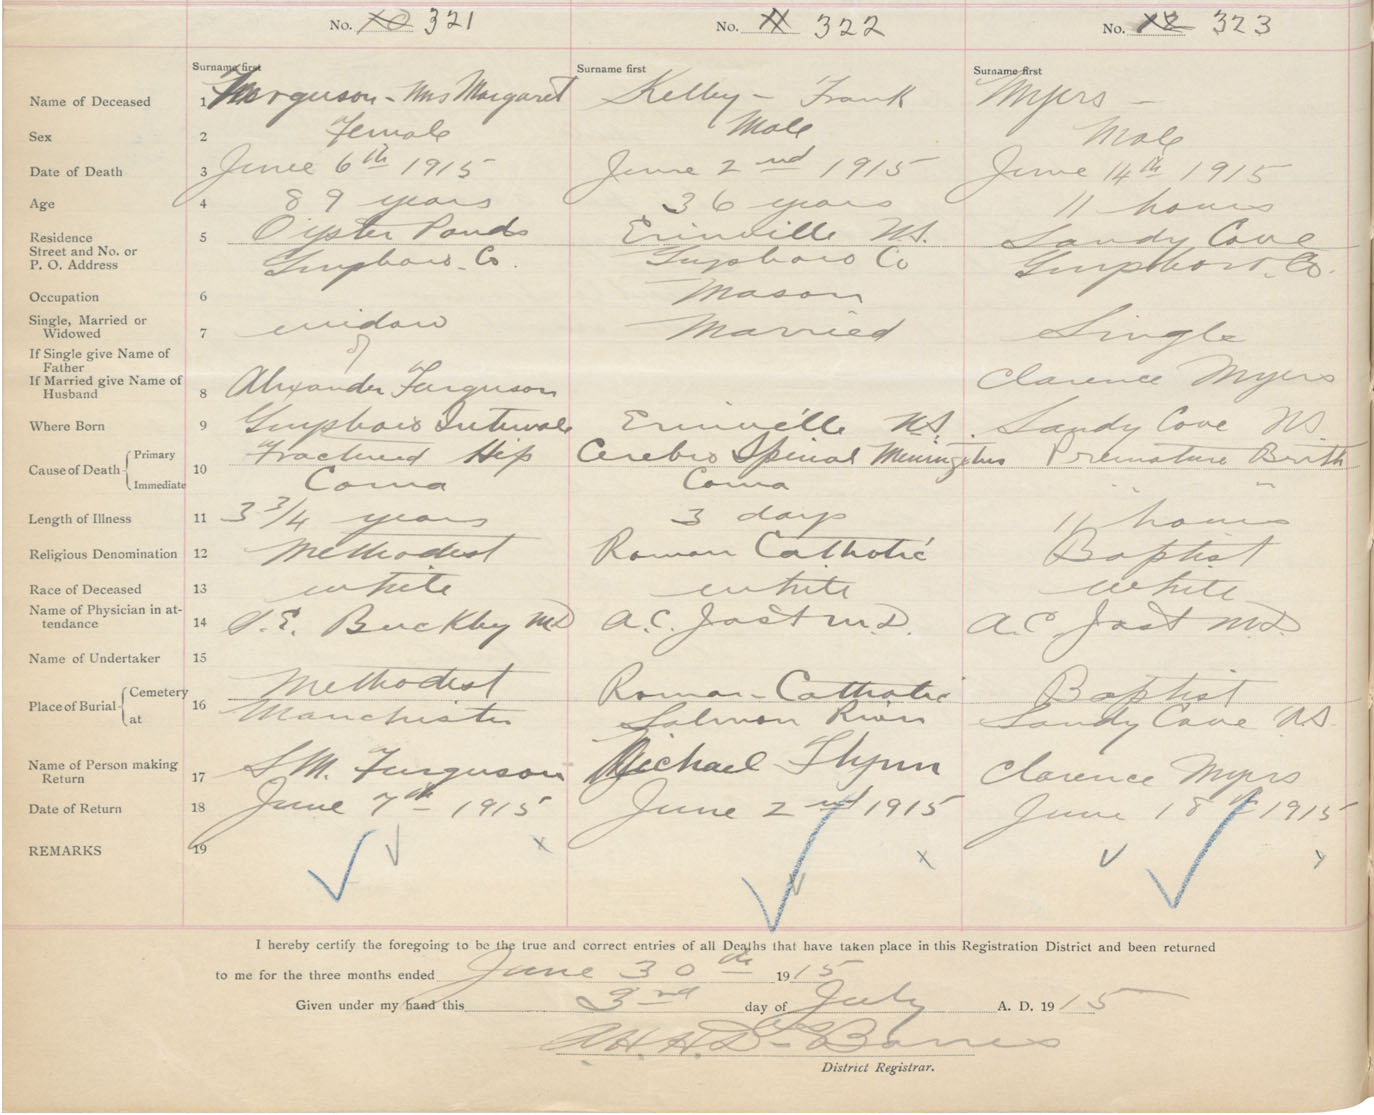 No. 10 321 No. 11 322 No. 12 323
Surname first Surname first Surname first
Name of Deceased 1 Ferguson - Mrs Margaret Kelley - Frank Myers -
Sex 2 Female Male Male
Date of Death 3 June 6th 1915 June 2nd 1915 June 14th 1915
Age 4 89 years 36 years 11 hours
Residence 5 Oyster Ponds Erinville N.S. Sandy Cove
Street and No. or
P. O. Address Guysboro Co. Guysboro Co Guysboro. Co.
Occupation 6 Mason
Single, Married or
Widowed 7 widow Married Single
If Single give Name of of
Father
If Married give Name of
Husband 8 Alexander Ferguson Clarence Myers
Where Born 9 Guysboro Interval Erinville N.S. Sandy Cove NS
Cause of Death Primary 10 Fractured Hip Cerebro Spinal Premature Birth
Immediate Coma Coma " "
Length of Illness 11 3 3/4 years 3 days 11 hours
Religious Denomination 12 Methodist Roman Catholic Baptist
Race of Deceased 13 white white white
Name of Physician in at-
tendance 14 Buckley MD A.C. Jost M.D. A.C. Jost M.D.
Name of Undertaker 15
Place of Burial Cemetery 16 Methodist Roman-Catholic Baptist
at Manchester Salmon River Sandy Cove NS.
Name of Person making
Return 17 S.M. Ferguson Michael Flynn Clarence Myers
Date of Return 18 June 7th 1915 June 2nd 1915 June 18th 1915
REMARKS 19
I hereby certify the foregoing to be the true and correct entries of all Deaths that have taken place in this Registration District and been returned
to me for the three months ended June 30th 1915
Given under my hand this 3rd day of July A. D. 1915
A.H.H. Des Barres
District Registrar.